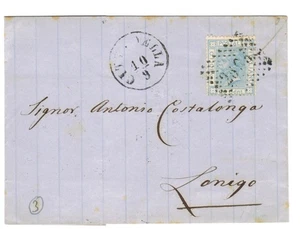 10
9
Signor Antonio Costalonga
Lonigo
3